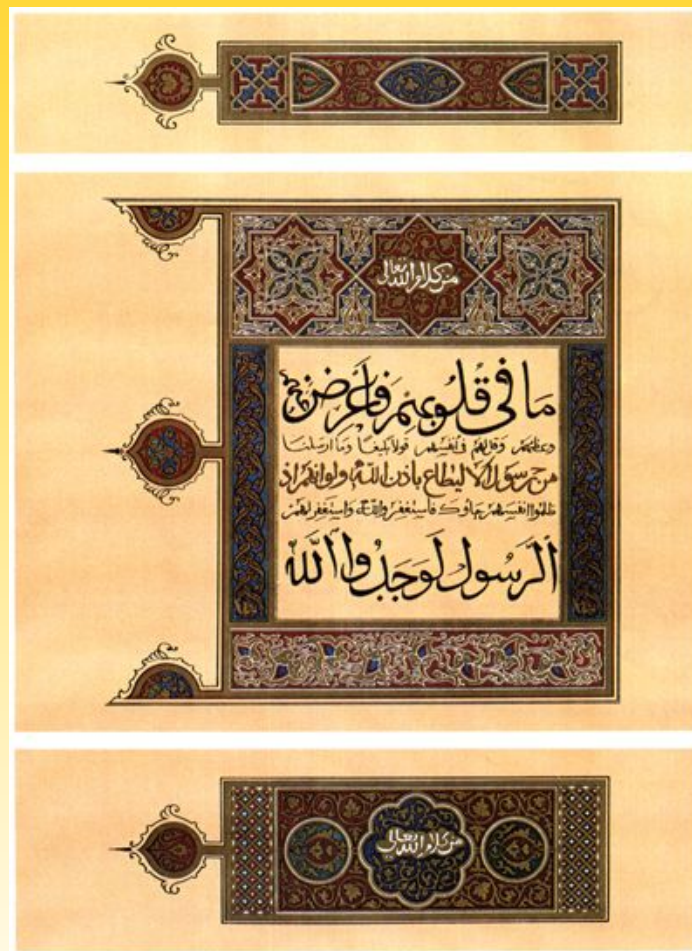 من كلام الله تعالى
ما في قلوبهم فأعرض عن
وعظهم وقل لهم في أنفسهم قولا بليغا وما أرسلنا
من رسول إلا ليطاع بإذن الله ولو أنهم إذ
ظلموا أنفسهم جاؤك فاستغفروا الله واستغفر لهم
الرسول لوجدوا الله
من كلام الله تعالى